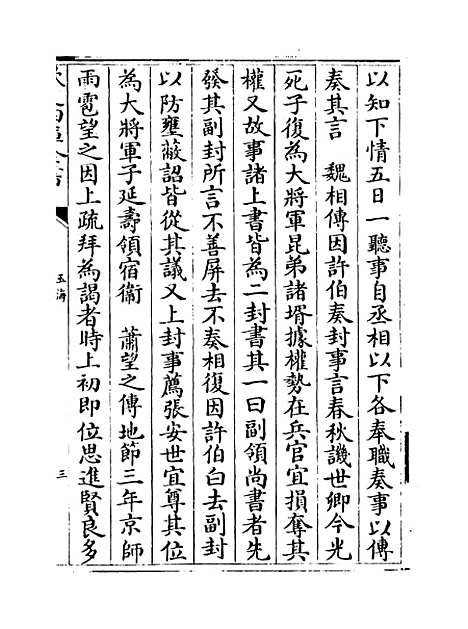 以知下情五日一聽事自丞相以下各奉職奏事以傅
奏其言　魏相傳因許伯奏封事言春秋譏世卿今光
死子復為大將軍昆弟諸壻據權勢在兵官宜損奪其
權又故事諸上書皆為二封書其一曰副領尚書者先
發其副封所言不善屏去不奏相復因許伯白去副封
以防壅蔽詔皆從其議又上封事薦張安世宜尊其位
為大將軍子延壽領宿衞　蕭望之傳地節三年京師
雨雹望之因上疏拜為謁者時上初即位思進賢良多
玉海
三